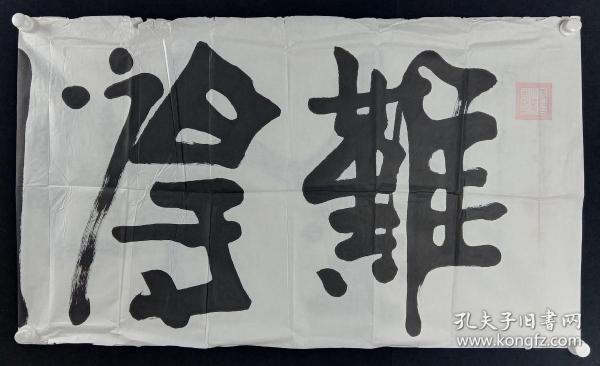 難得
孔夫子旧书网
www.kongfz.com